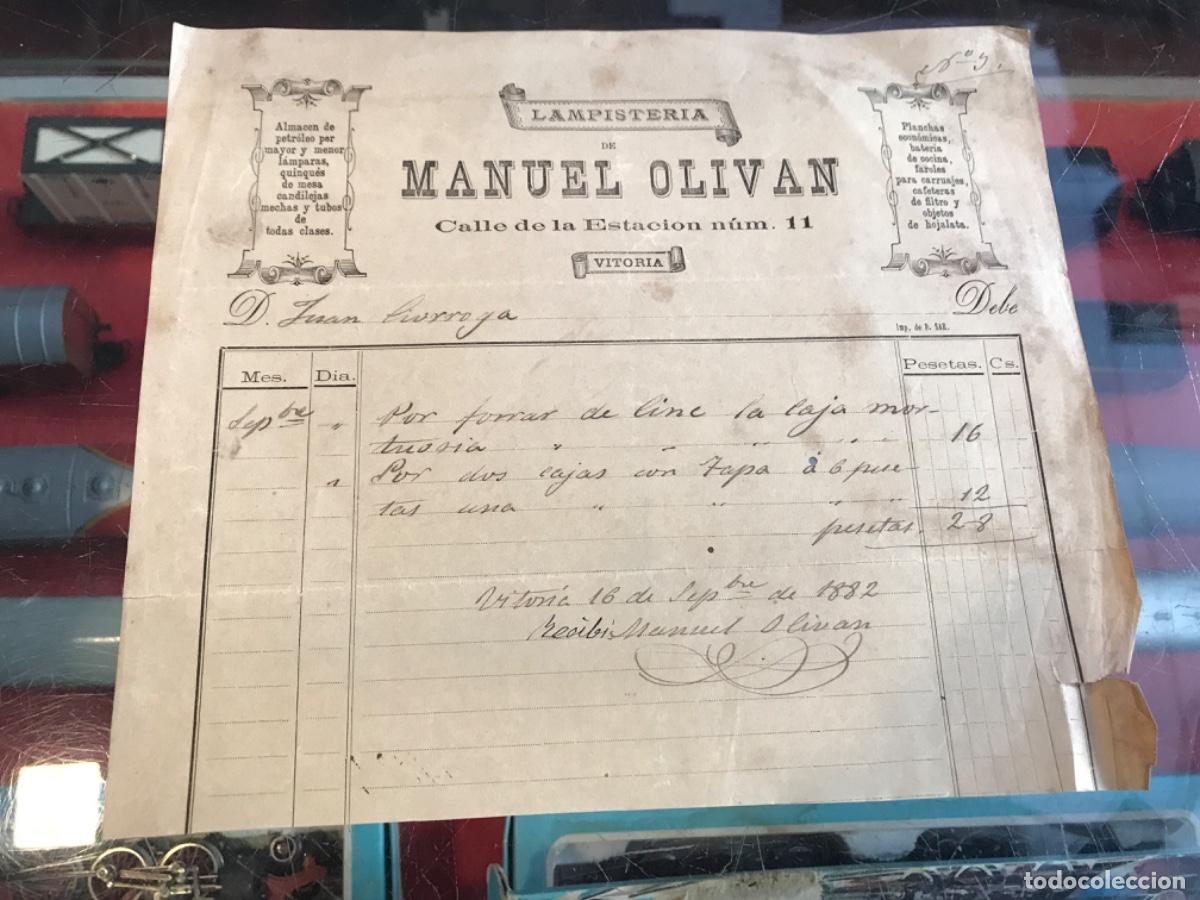 Nº 3.
Almacen de
petróleo per
mayor y menor
lámparas,
quinqués
de mesa
candilejas
mechas y tubos
de
todas clases.
LAMPISTERIA
DE
MANUEL OLIVAN
Calle de la Estacion núm. 11
VITORIA
Planchas
económicas,
bateria
de cocina,
faroles
para carruajes,
cafeteras
de filtro y
objetos
de hojalata.
D. Juan Ciorroga
Debe
Imp. de D. SAR.
Mes. Dia. Pesetas. Cs.
Sepbre " Por forrar de Cinc la Caja mor-
tuoria " " " " " 16
" Por dos cajas con Tapa á 6 pese-
tas una " " " " 12
pesetas. 28
Vitoria 16 de Sepbre de 1882
Recibi Manuel Olivan
todocoleccion